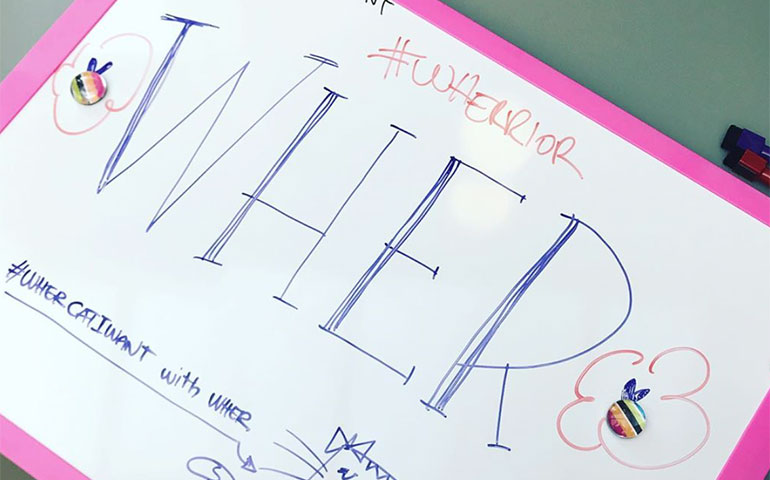 #WHERRIOR
WHER
#WHERCATIWANT with WHER